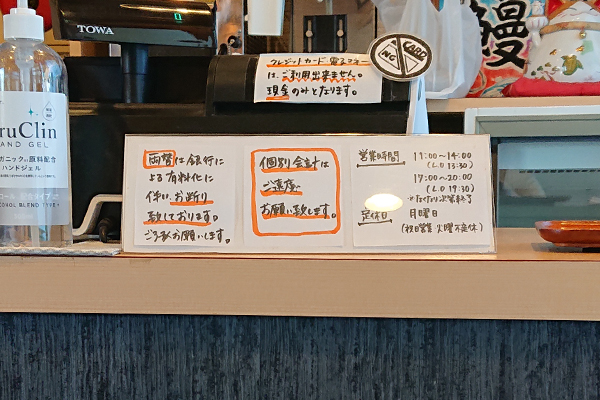 TOWA
鰻
クレジットカード・電子マネー
は、ご利用出来ません。
現金のみとなります。
NO CARD
ruClin
AND GEL
ガニックの原料配合
ハンドジェル
両替は銀行に
よる有料化に
伴い、お断り
致しております。
ご了承お願いします。
個別会計は
ご遠慮
お願い致します。
営業時間 11:00~14:00
(L.O 13:30)
17:00~20:00
(L.O 19:30)
定休日 月曜日
(祝日営業 火曜不定休)